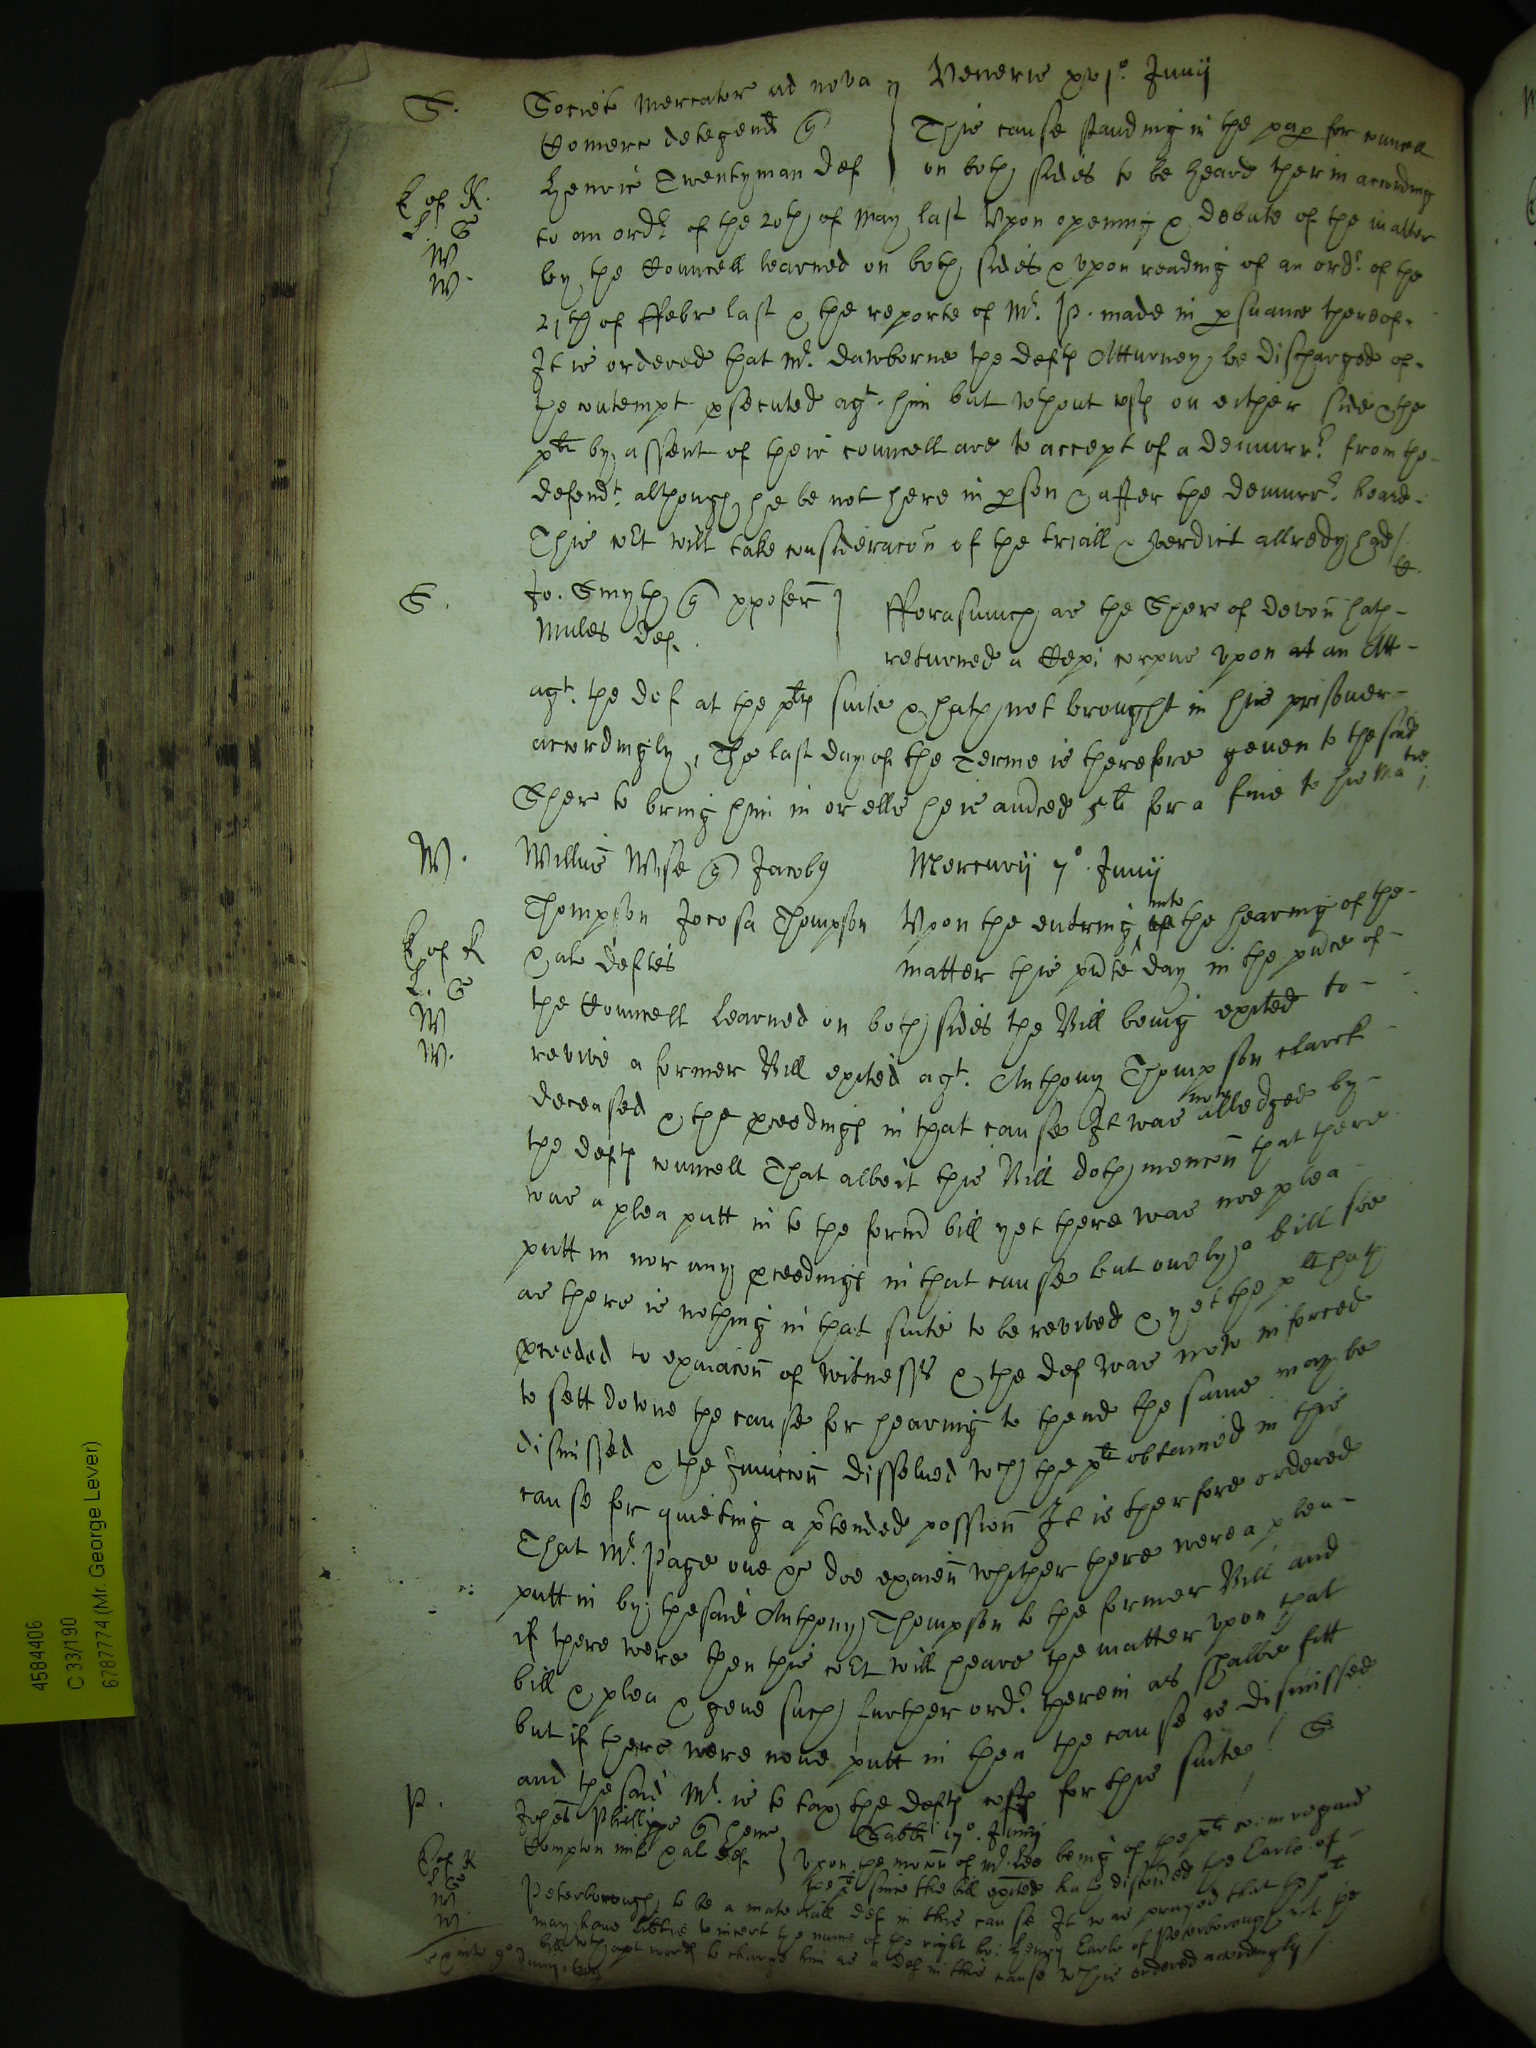 S. Societ Mercator ad nova Veneris xvi° Junij
Comerc detegend
Henric Twentyman def
This cause standing in the pap for councell
on both sides to be heard therin according
K of K.
L. G
W
W.
to an ordr of the 20th of May last Upon opening & debate of the matter
by the Councell learned on both sides & upon reading of an ordr of the
21th of ffebr last & the reporte of Mr. P. made in psuance thereof.
It is ordered that Mr. Dawborne the defts Atturney be discharged of
the contempt psecuted agt him but wthout costs on either side & the
plt by assent of their councell are to accept of a demurrr from the
defendt although he be not here in pson & after the demurrr heard
This cort will take consideracon of the triall & verdict allredy had /
S. Jo. Smyth
Mules def.
fforasmuch as the Sher of Devon hath
returned a Cepi corpus upon at an Att
agt. the def at the plts suite & hath not brought in his prisoner
accordingly, The last day of the Terme is therefore geven to the said
Sher to bring him in or else he is amced 5li for a fine to his Matie
W. Willms Wise Jacob Mercurij 7° Junij
Thompson Jocosa Thompson
& als deftes
Upon the entring into the hearing of the
matter this pnte day in the pnce of
K of K
L. G
W
W.
the Councell learned on both sides the Bill being exited to
revive a former Bill exited agt. Anthony Thompson clarck
deceased & the pceedings in that cause It was now alledged by
the defts councell That albeit this Bill doth mencon that there
was a plea putt in to the form bill yet there was noe plea
putt in nor any pceedings in that cause but onely a bill soe
as there is nothing in that suite to be revived & yet the plt hath
pceeded to exmiacon of witnesses & the def was now inforced
to sett downe the cause for hearing to thend the same may be
dismissed & the Iniuccon dissolved wch the plt obtained in this
cause for quieting a ptended possion It is therfore ordered
That Mr. Page one &c doe examen whither there were a plea
putt in by the said Anthony Thompson to the former Bill and
if there were then this cort will heare the matter upon that
bill & plea & geve such further ordr. therein as shalbe fitt
but if there were none putt in then the cause is dismissed
and the said Mr. is to tax the defts costs for this suite /
P. Johes Phillipps henr Sabbi 17° Junij
Compton mil & al def
K of K
L G
W
W.
Upon the mocon of Mr. Lee being of the plts co: in regard
the plt since the bill exited hath discovered the Earle of
Peterborough to be a materiall def in this cause It was prayed that the plt
may have libtie to insert the name of the right ho: Henry Earle of Peterborough into the
bill with apt words to charge him as a def in this cause wch is ordered accordingly /
4584406
C 33/190
6787774 (Mr. George Lever)